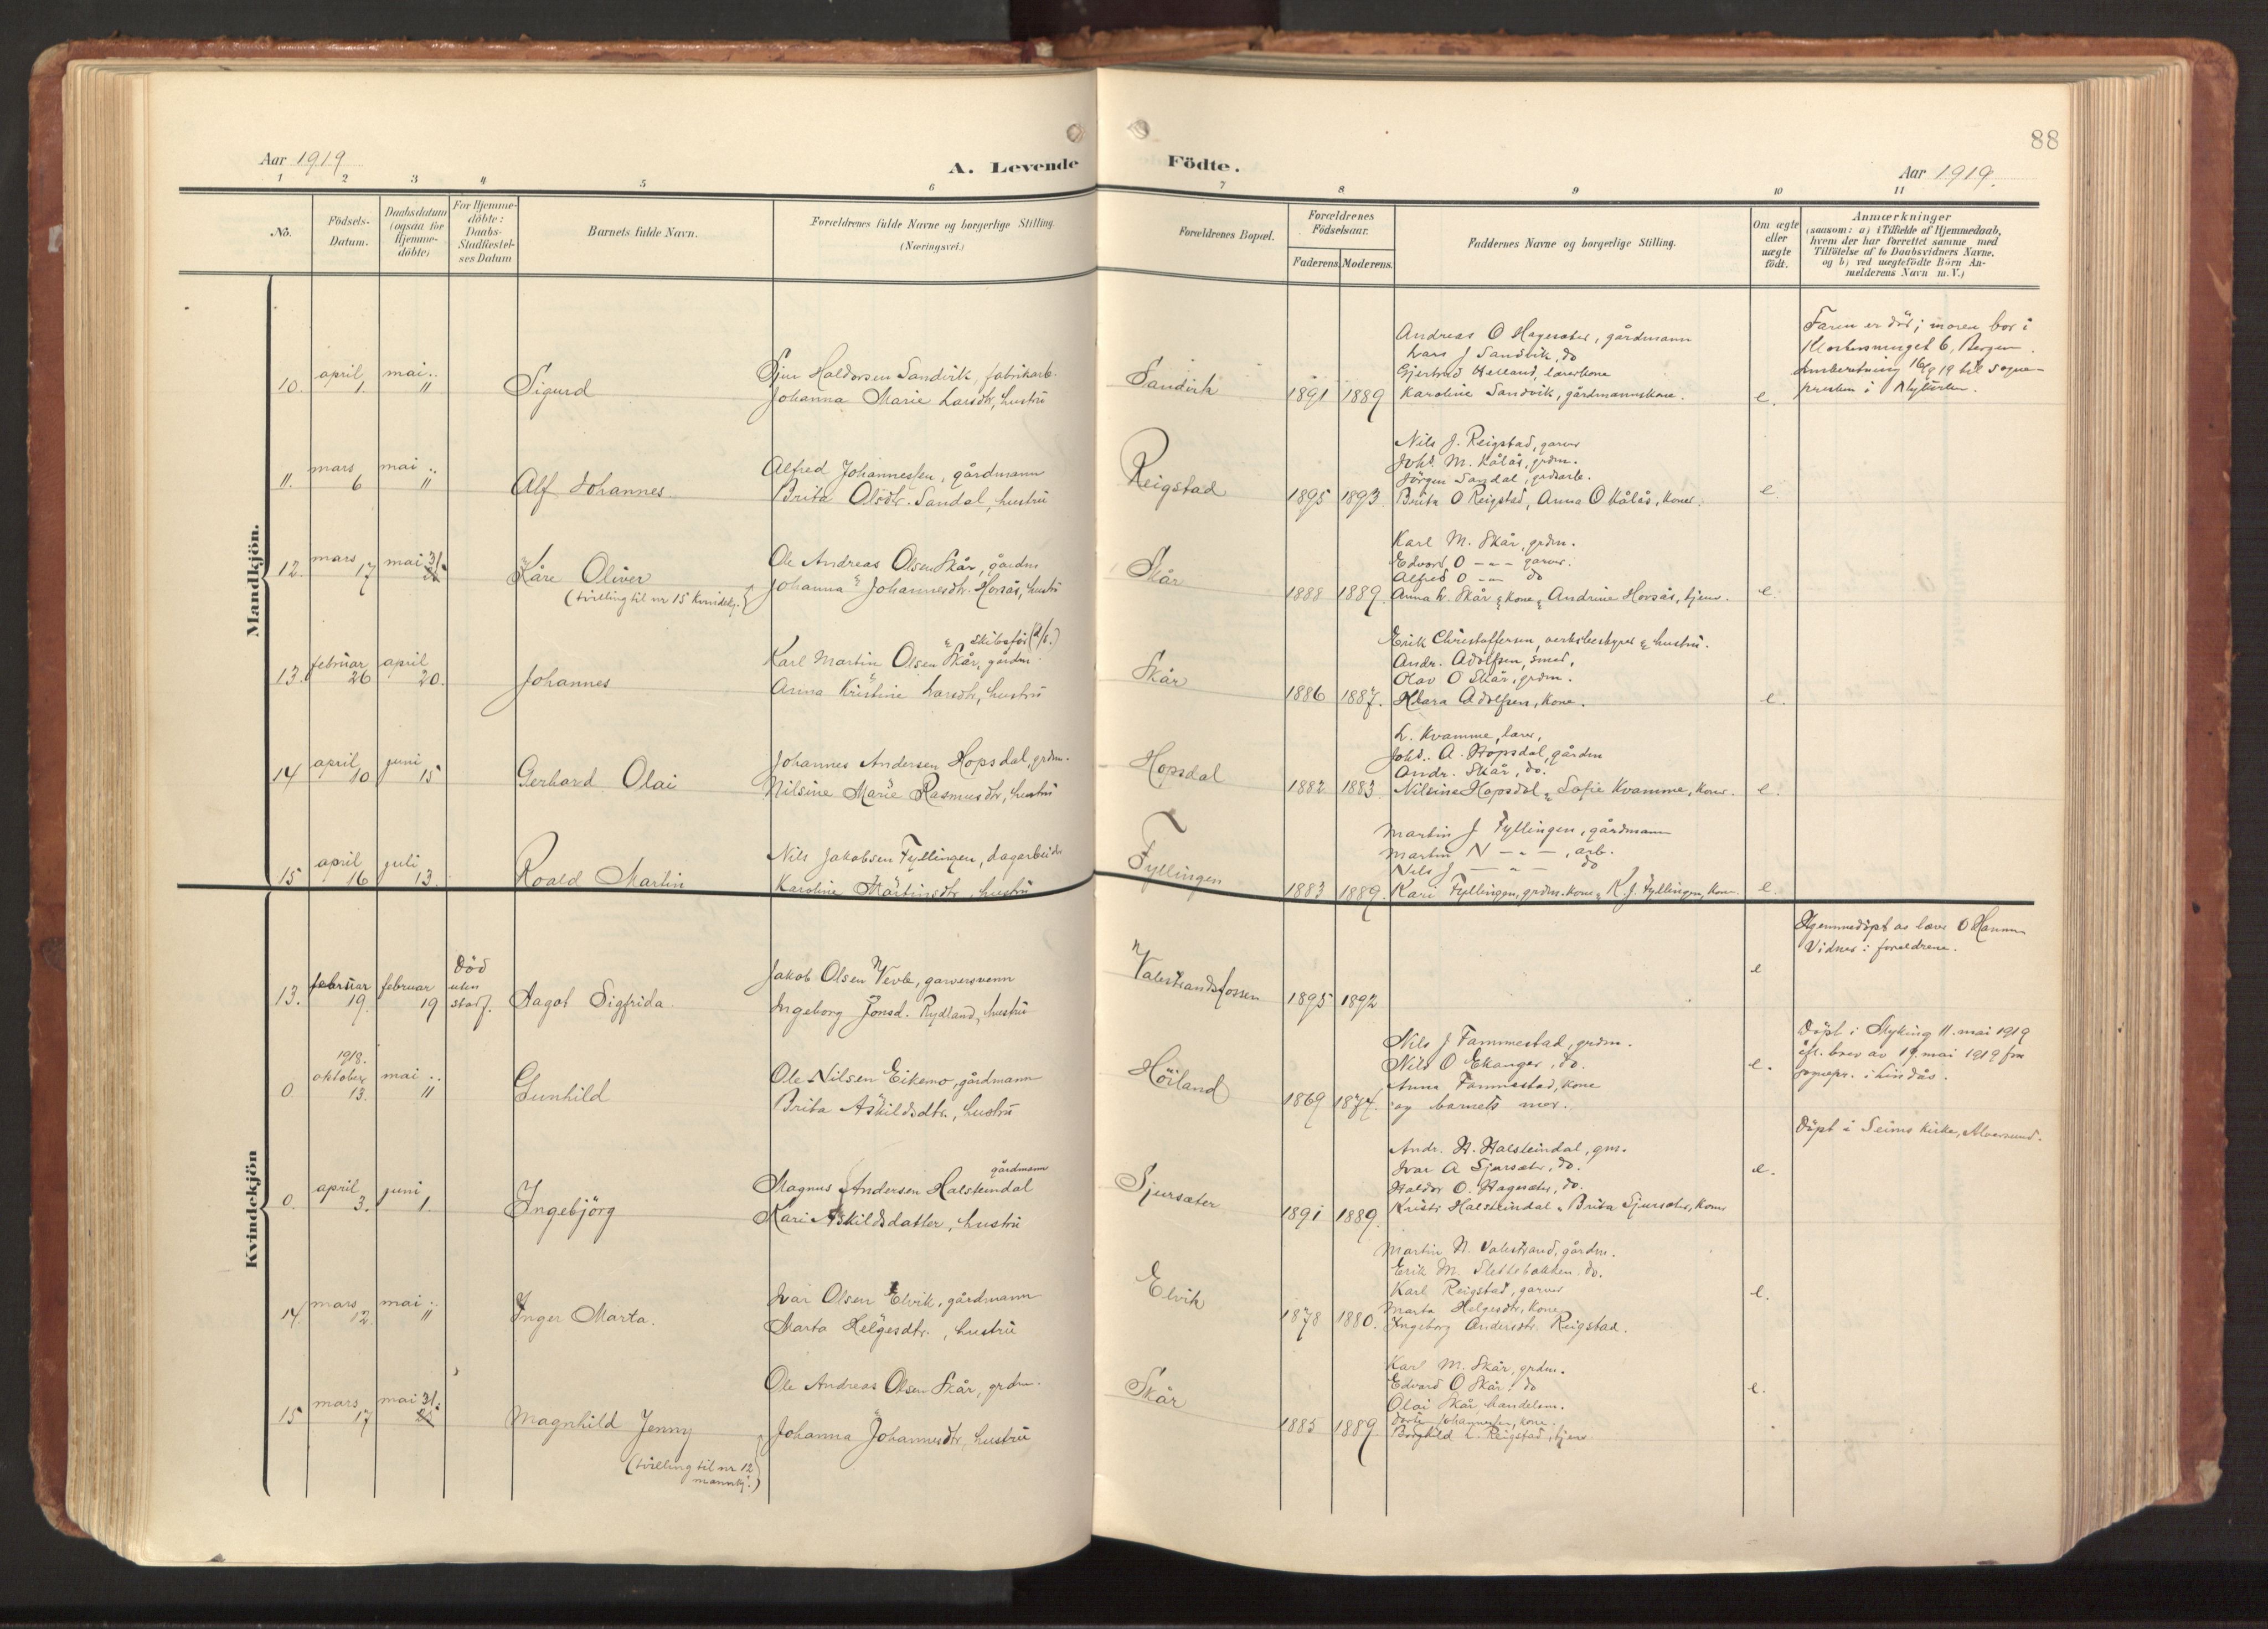 88
Aar 1919
A. Levende Födte.
Aar 1919.
1 2 3 4 5 6 7 8 9 10 11
No.
Födsels-Datum.
Daabsdatum (ogsaa for Hjemme-döbte)
For Hjemme-döbte: Daabs-Stadfæstel-ses Datum
Barnets fulde Navn.
Forældrenes fulde Navne og borgerlige Stilling. (Næringsvei.)
Forældrenes Bopæl.
Forældrenes Födselsaar.
Faderens. Moderens.
Faddernes Navne og borgerlige Stilling.
Om ægte eller uægte födt.
Anmærkninger
(saasom: a) i Tilfælde af Hjemmedaab,
hvem der har forrettet samme med
Tilföielse af to Daabsvidners Navne.
og b) ved uægtefödte Börn An-
melderens Navn m. V.)
Mandkjön.
10. april 1. mai 11
Sigurd
Sjur Haldorsen Sandvik, fabrikarb.
Johanna Marie Larsdtr, hustru
Sandvik
1891 1889
Andreas O Hagesæter, gårdmann
Lars J Sandvik, do
Gjertrud Helland, lærerkone
Karoline Sandvik, gårdmannskone.
e.
Faren er död; moren bor i
6, Bergen.
til sogne-
presten i
11. mars 6 mai 11
Alf Johannes
Alfred Johannessen, gårdmann
Brita Olsdtr. Sandal, hustru
Reigstad
1895 1893
Nils J. Reigstad, garver
Johs. M. Kålås, grdm.
Jörgen Sandal, grdarb.
Brita O Reigstad, Anna O Kålås, koner.
e
12. mars 17 mai 31.
Kåre Oliver
(tvilling til nr 15 kvindekj.)
Ole Andreas Olsen Skår, gårdm
Johanna Johannesdtr. Horsås, hustru
Skår
1888 1889
Karl M. Skår, grdm.
Edvard O -"- garver.
Alfred O -"- do
Anna L. Skår, kone, Andrine Horsås, tjener.
e.
13. februar 26 april 20.
Johannes
Karl Martin Olsen Skår, gårdm.
Anna Kristine Larsdtr, hustru
Skår
1886 1887.
Erik Christoffersen, verksbestyrer & hustru.
Andr. Adolfsen, smed,
Olav O Skår, grdm.
Klara Adolfsen, kone.
e.
14 april 10 juni 15
Gerhard Olai
Johannes Andersen Hopsdal, grdm.
Nilsine Marie Rasmusdtr, hustru
Hopsdal
1882 1883
L. Kvamme, lærer,
Johs. A. Hopsdal, gårdm
Andr. Skår, do.
Nilsine Hopsdal, Sofie Kvamme, koner.
e.
15 april 16 juli 13.
Roald Martin
Nils Jakobsen Fyllingen, dagarbeider
Karoline Martinsdtr, hustru
Fyllingen
1883 1889.
Martin J Fyllingen, gårdmann
Martin N -"-, arb.
Nils J -"- do
Kari Fyllingen, grdm.kone, K. J. Fyllingen, kone.
e.
Kvindekjön
13. februar 19. februar 19
Död uten stadf.
Dagot Sigfrida.
Jakob Olsen Vevle, garversvenn
Ingeborg Jonsd. Rydland, hustru
Valestrandsfossen
1895 1892
e
Hjemmedöpt av lærer O Hannu
Vidner: foreldrene.
0. 1918. oktober 13. mai 11
Gunhild
Ole Nilsen Eikemo, gårdmann
Brita Askildsdtr., hustru
Höiland
1869 1874.
Nils J Fammestad, grdm.
Nils O Ekanger, do.
Anna Fammestad, kone
og barnets mor.
e.
Döpt i Myking 11. mai 1919
efl. brev av 19. mai 1919 fra
sognepr. i Lindås.
0. april 3. juni 1.
Ingebjörg
Magnus Andersen Halsteindal gårdmann
Kari Askildsdatter, hustru
Sjursæter
1891 1889.
Andr. H. Halsteindal, gm.
Ivar A Sjursæter, do.
Haldor O. Hagesæter, do.
Kristi Halsteindal, Brita Sjursæter, koner
e.
Döpt i Seims kirke, Alversund.
14. mars 12. mai 11
Inger Marta.
Ivar Olsen Elvik, gårdmann
Marta Helgesdtr., hustru
Elvik
1878 1880.
Martin N. Valestrand, gårdm.
Erik M. Slettebakken do.
Karl Reigstad, garver
Marta Helgesdtr, kone
Ingeborg Andersdtr. Reigstad.
e.
15 mars 17 mai 31.
Magnhild Jenny
(tvilling til nr 12
mannkj.)
Ole Andreas Olsen Skår, grdm.
Johanna Johannesdtr, hustru
Skår
1885 1889
Karl M. Skår, grdm.
Edvard O Skår, do
Olai Skår, handelsm.
Dorte Johannessen, kone.
Borghild L. Reigstad, tjener
e.